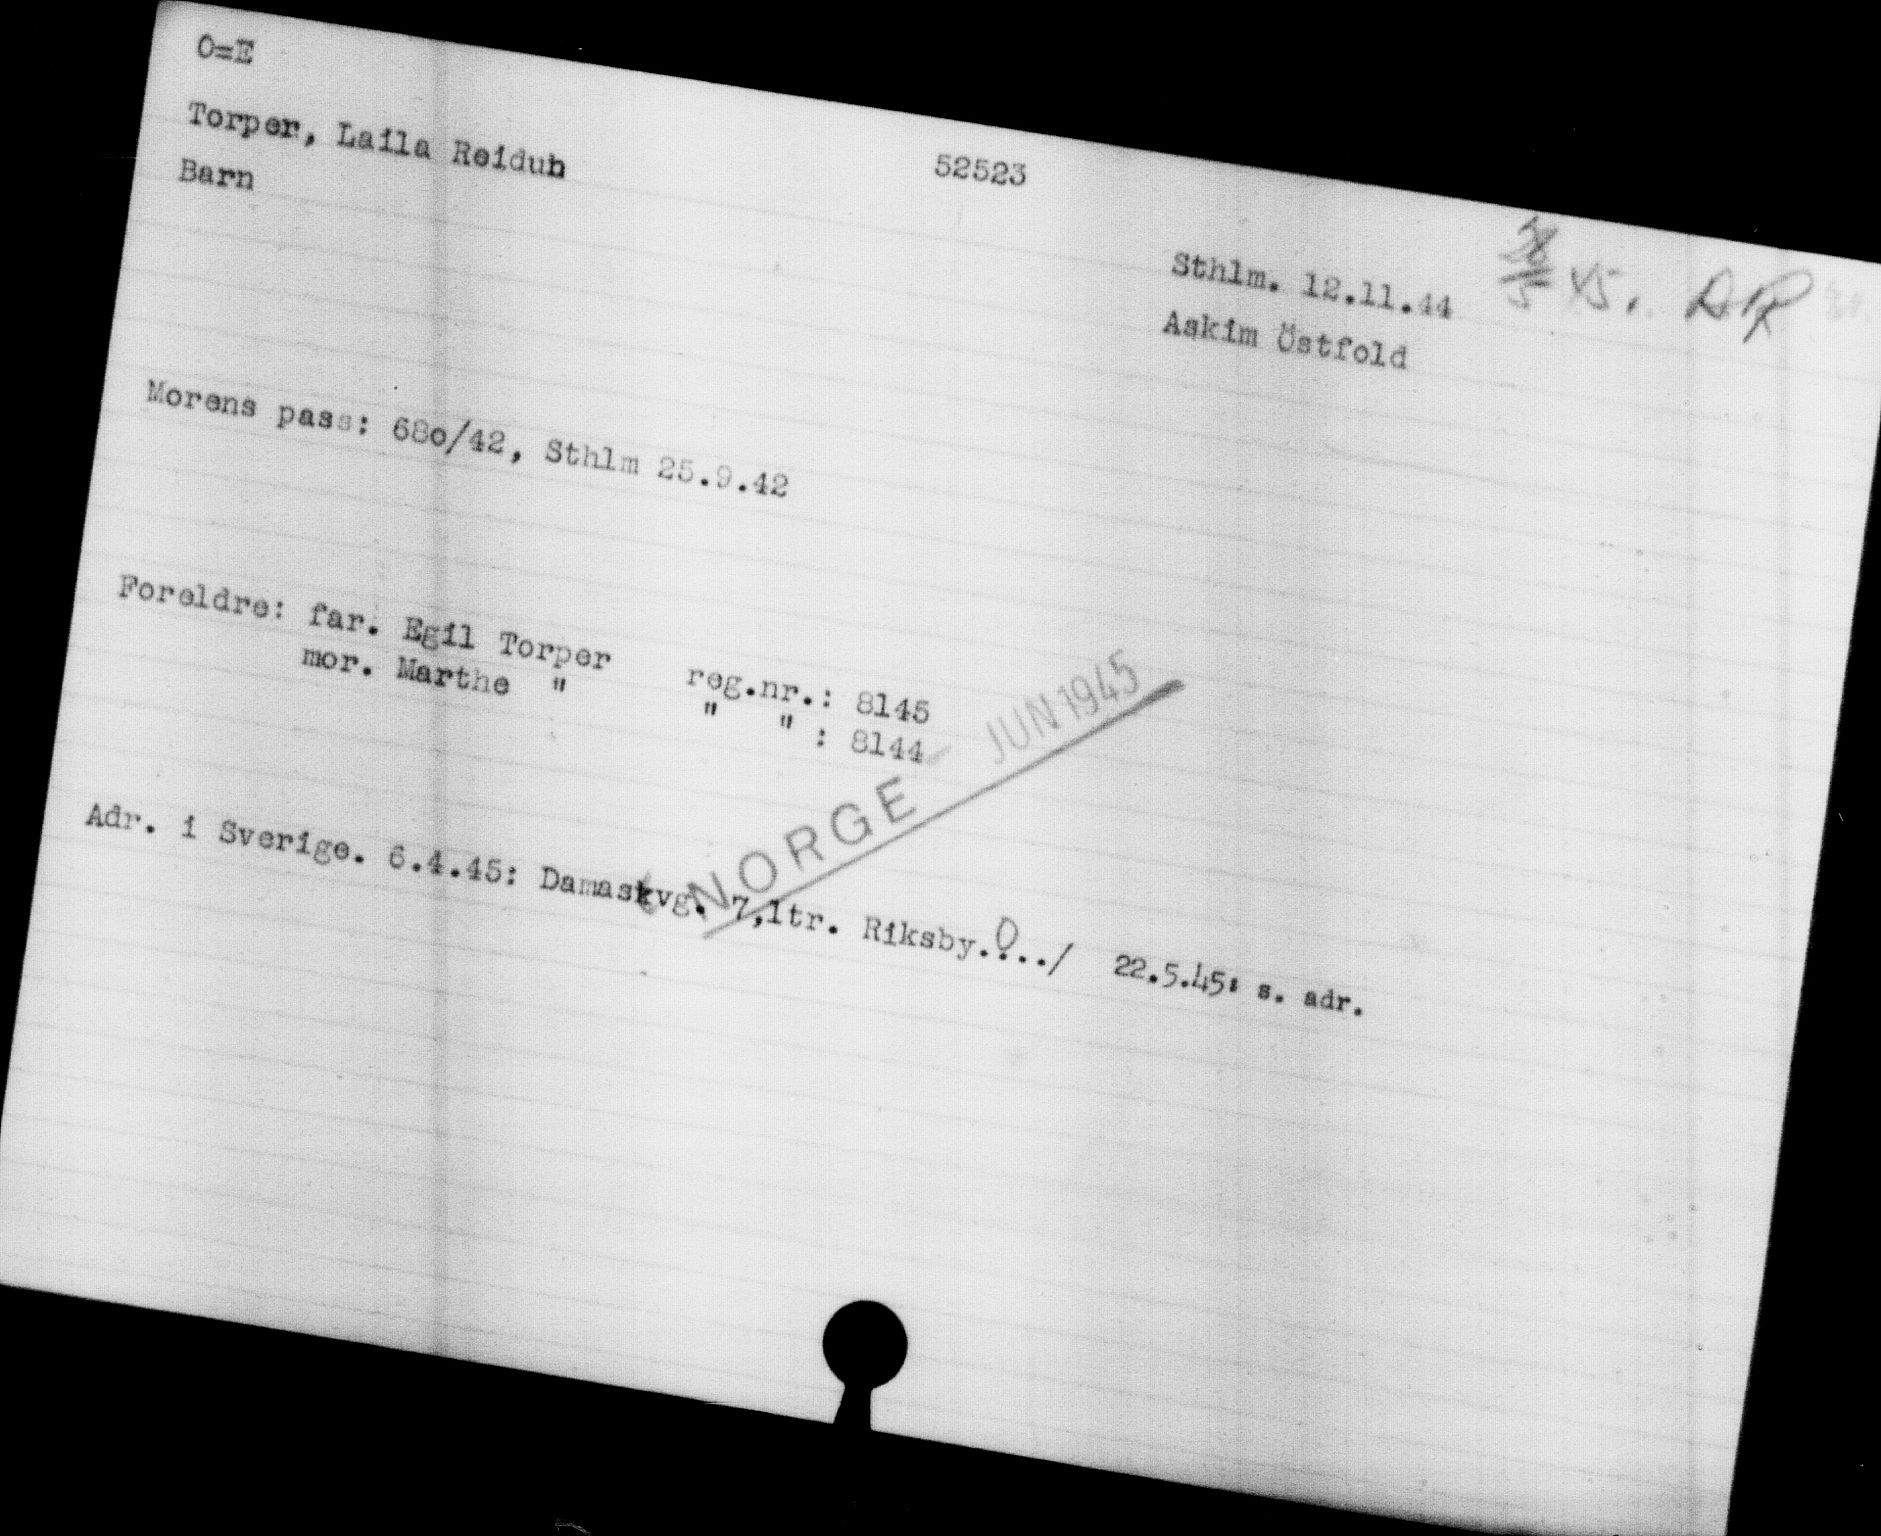 O=E
Torper, Laila Reidun
52523
Barn
Sthlm. 12.11.44
45.
Askim Östfold
Morens pass: 680/42, Sthlm 25.9.42
Foreldre: far. Egil Torper reg.nr.: 8145
mor. Marthe " " " : 8144
NORGE JUN 1945
Adr. i Sverige. 6.4.45: Damaskvg. 7,1tr. Riksby..../ 22.5.45: s. adr.